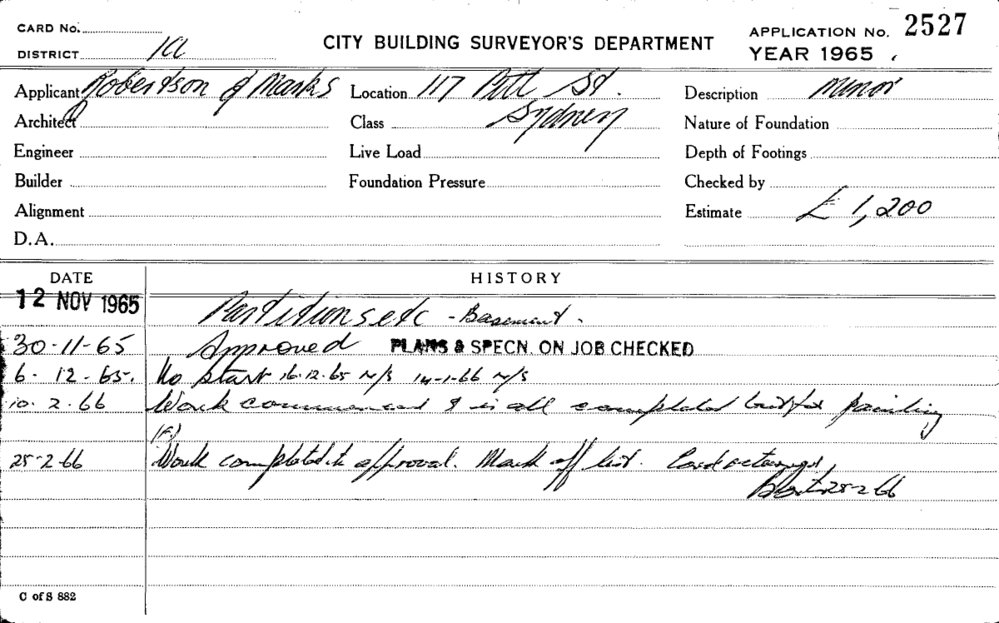 CARD No.
DISTRICT 1a
CITY BUILDING SURVEYOR'S DEPARTMENT
APPLICATION No. 2527
YEAR 1965
Applicant Robertson & Marks
Location 117 Pitt St.
Sydney
Description Minor
Architect
Class
Nature of Foundation
Engineer
Live Load
Depth of Footings
Builder
Foundation Pressure
Checked by
Alignment
Estimate £ 1,200
D.A.
DATE
HISTORY
12 NOV 1965 Partitions etc - Basement.
30-11-65 Approved PLANS & SPECN. ON JOB CHECKED
6-12-65. No start 16.12.65 N/S 14-1-66 N/S
10.2.66 Work commenced & is all completed but for painting
25-2-66 Work completed to approval. Mark off list.
25-2-66
C of S 882